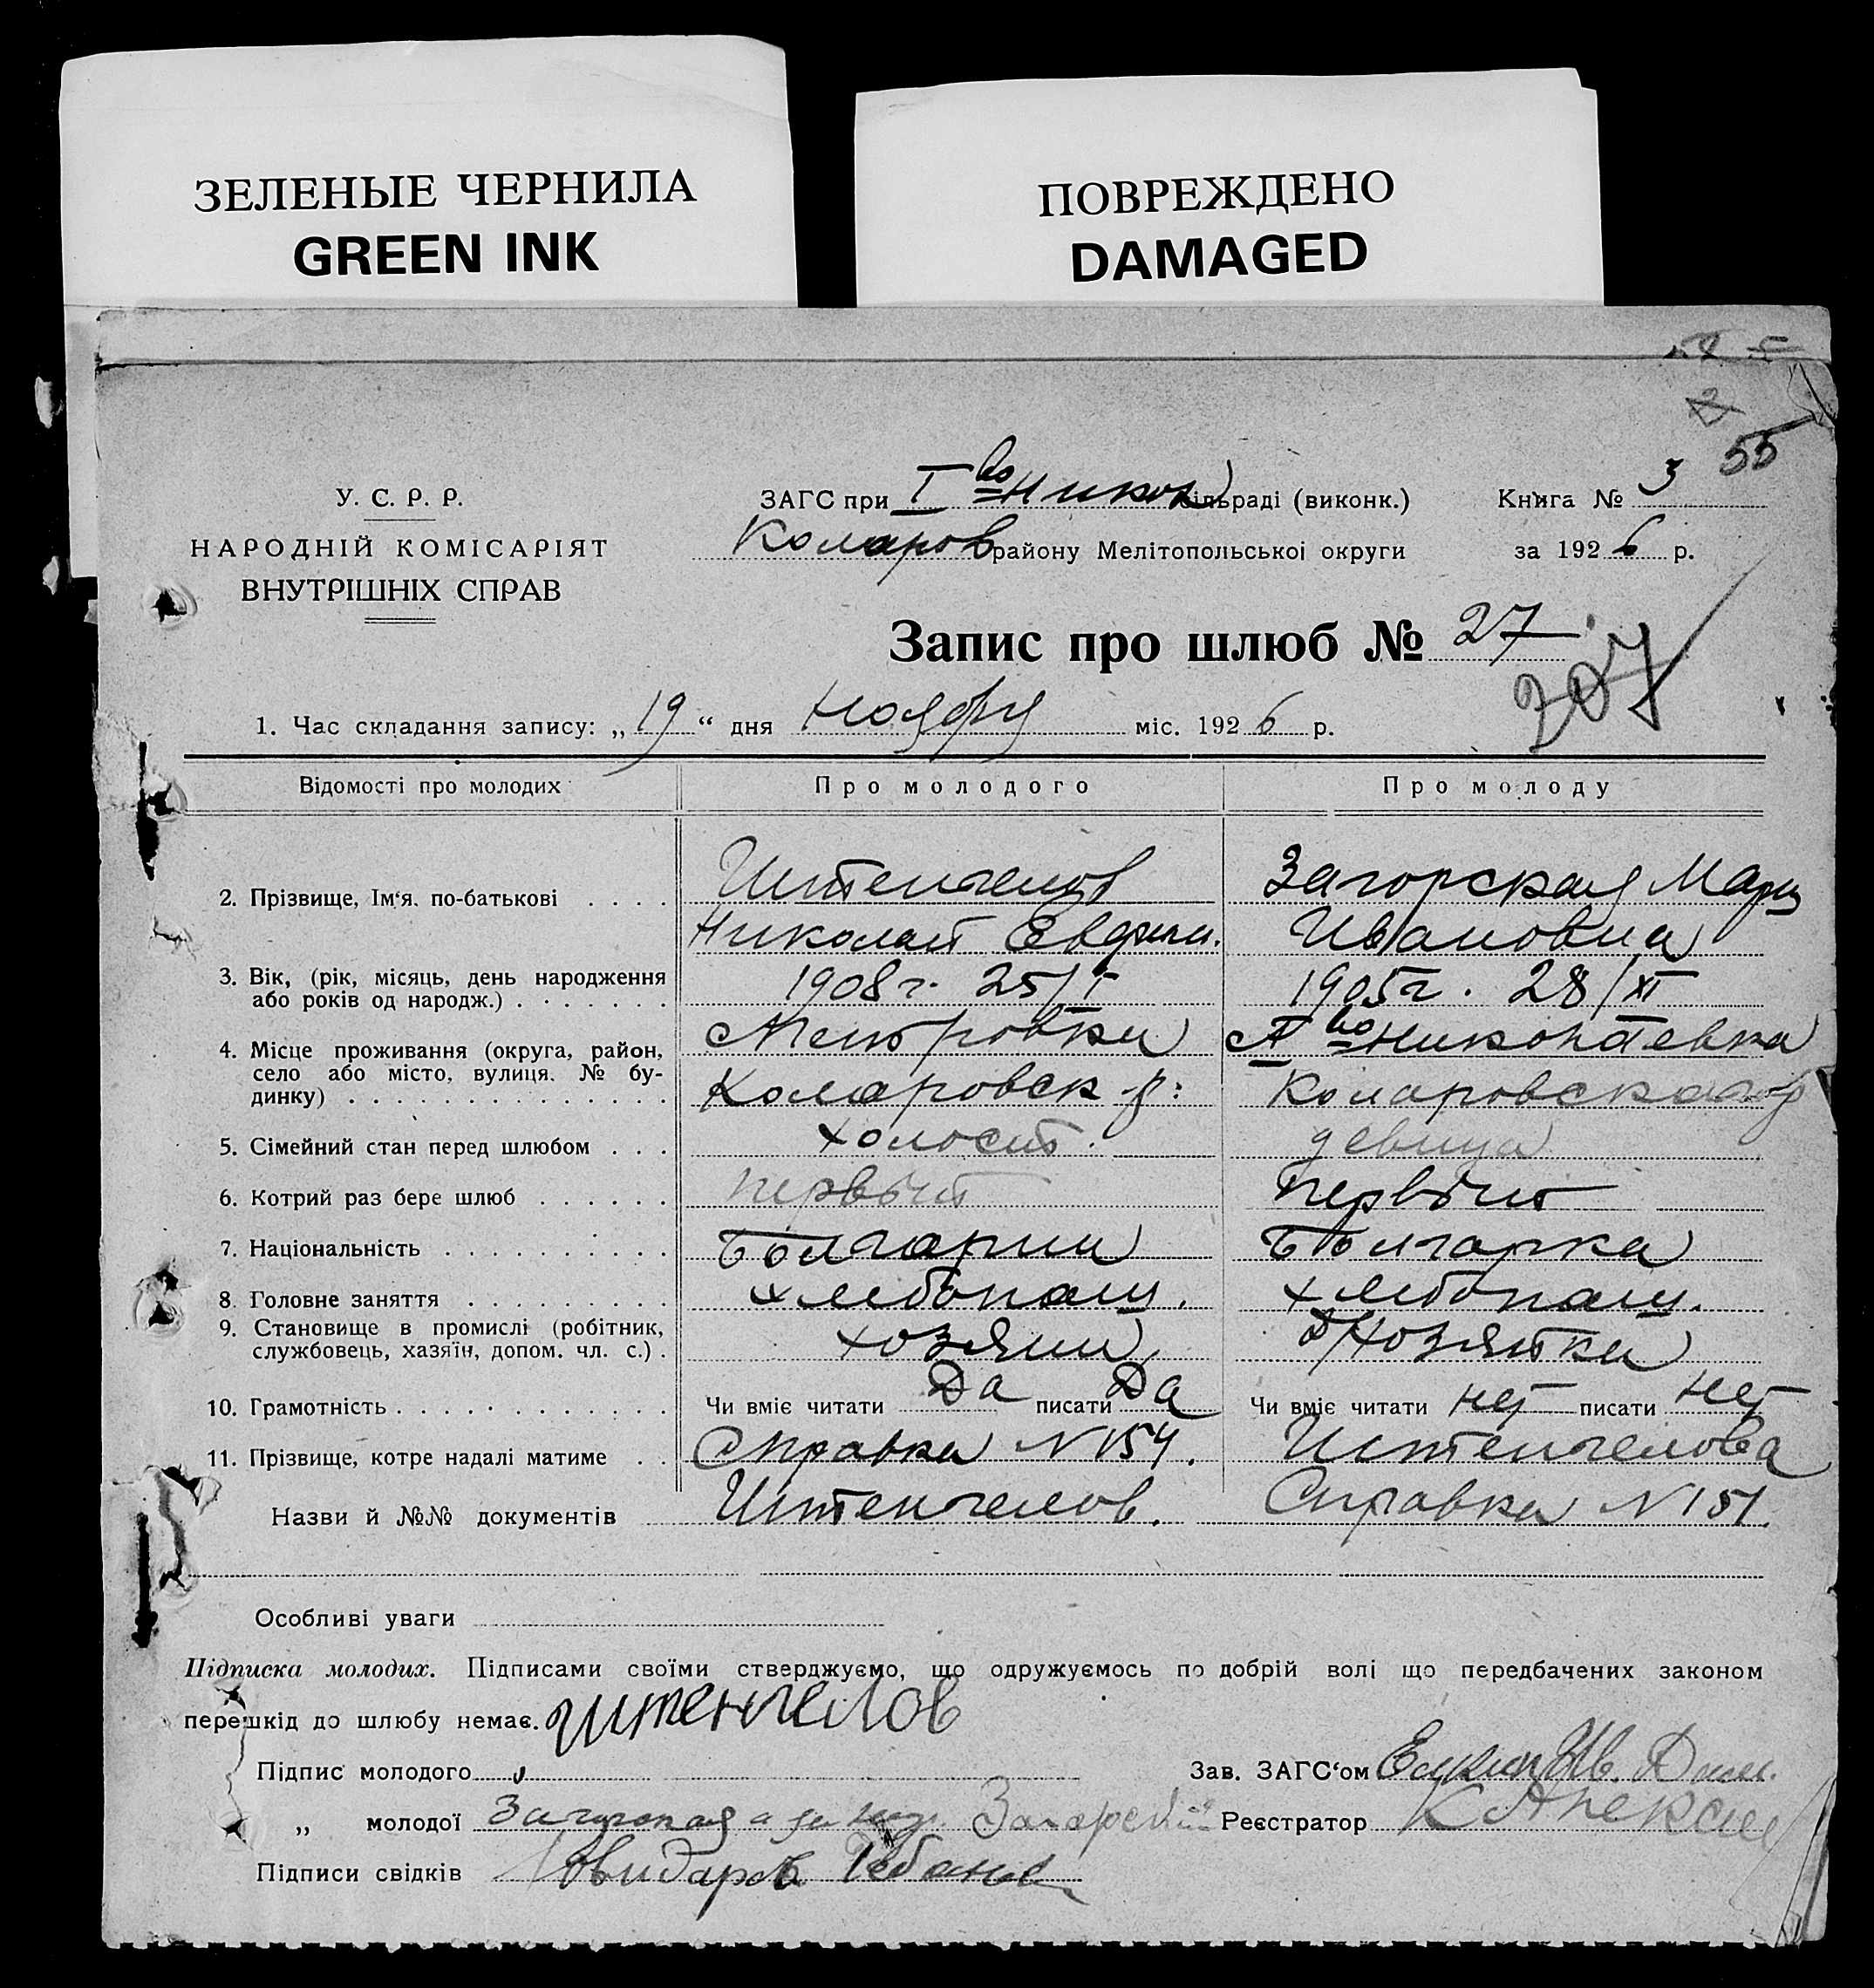 ЗЕЛЕНЫЕ ЧЕРНИЛА
GREEN INK
ПОВРЕЖДЕНО
DAMAGED
55
У. С. Р. Р.
НАРОДНІЙ КОМІСАРІЯТ
ВНУТРІШНІХ СПРАВ
ЗАГС при I во Никол сільраді (виконк.)
Коларов району Мелітопольської округи
Книга № 3
за 1926 р.
Запис про шлюб № 27
207
1. Час складання запису: „19“ дня Ноября міс. 1926 р.
Відомості про молодих Про молодого Про молоду
2. Прізвище, Ім'я, по-батькові . . . . Иштенчелов Загорская Мария
Николай Евдоким. Ивановна
3. Вік, (рік, місяць, день народження
або років од народж.) . . . . . . . 1908 г. 25/I 1905 г. 28/XI
4. Місце проживання (округа, район,
село або місто, вулиця, № бу-
динку) . . . . . . . . . . . . . .
Коларовск р: во Николаевка
Коларовского р
5. Сімейний стан перед шлюбом . . . холост. девица
6. Котрий раз бере шлюб . . . . . . первый первый
7. Національність . . . . . . . . . . Болгарин Болгарка
8. Головне заняття . . . . . . . . . хлебопаш. хлебопаш.
9. Становище в промислі (робітник,
службовець, хазяїн, допом. чл. с.) . хозяин хозяйка
10. Грамотність . . . . . . . . . . . . Чи вміє читати Да писати Да Чи вміє читати нет писати нет
11. Прізвище, котре надалі матиме . . Справка N 154. Иштенчелова
Назви й №№ документів Иштенчелов. Справка N 151.
Особливі уваги
Підписка молодих. Підписами своїми стверджуємо, що одружуємось по добрій волі що передбачених законом
перешкід до шлюбу немає. Иштенчелов
Підпис молодого
Зав. ЗАГС'ом
„ молодої Загорская а за Загорский Реєстратор
Підписи свідків